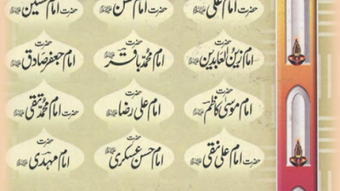 حضرت امام علی حضرت امام حسن حضرت امام حسین
حضرت امام زین العابدین حضرت امام محمد باقر حضرت امام جعفر صادق
حضرت امام موسیٰ کاظم حضرت امام علی رضا حضرت امام محمد تقی
حضرت امام علی نقی حضرت امام حسن عسکری حضرت امام مہدی